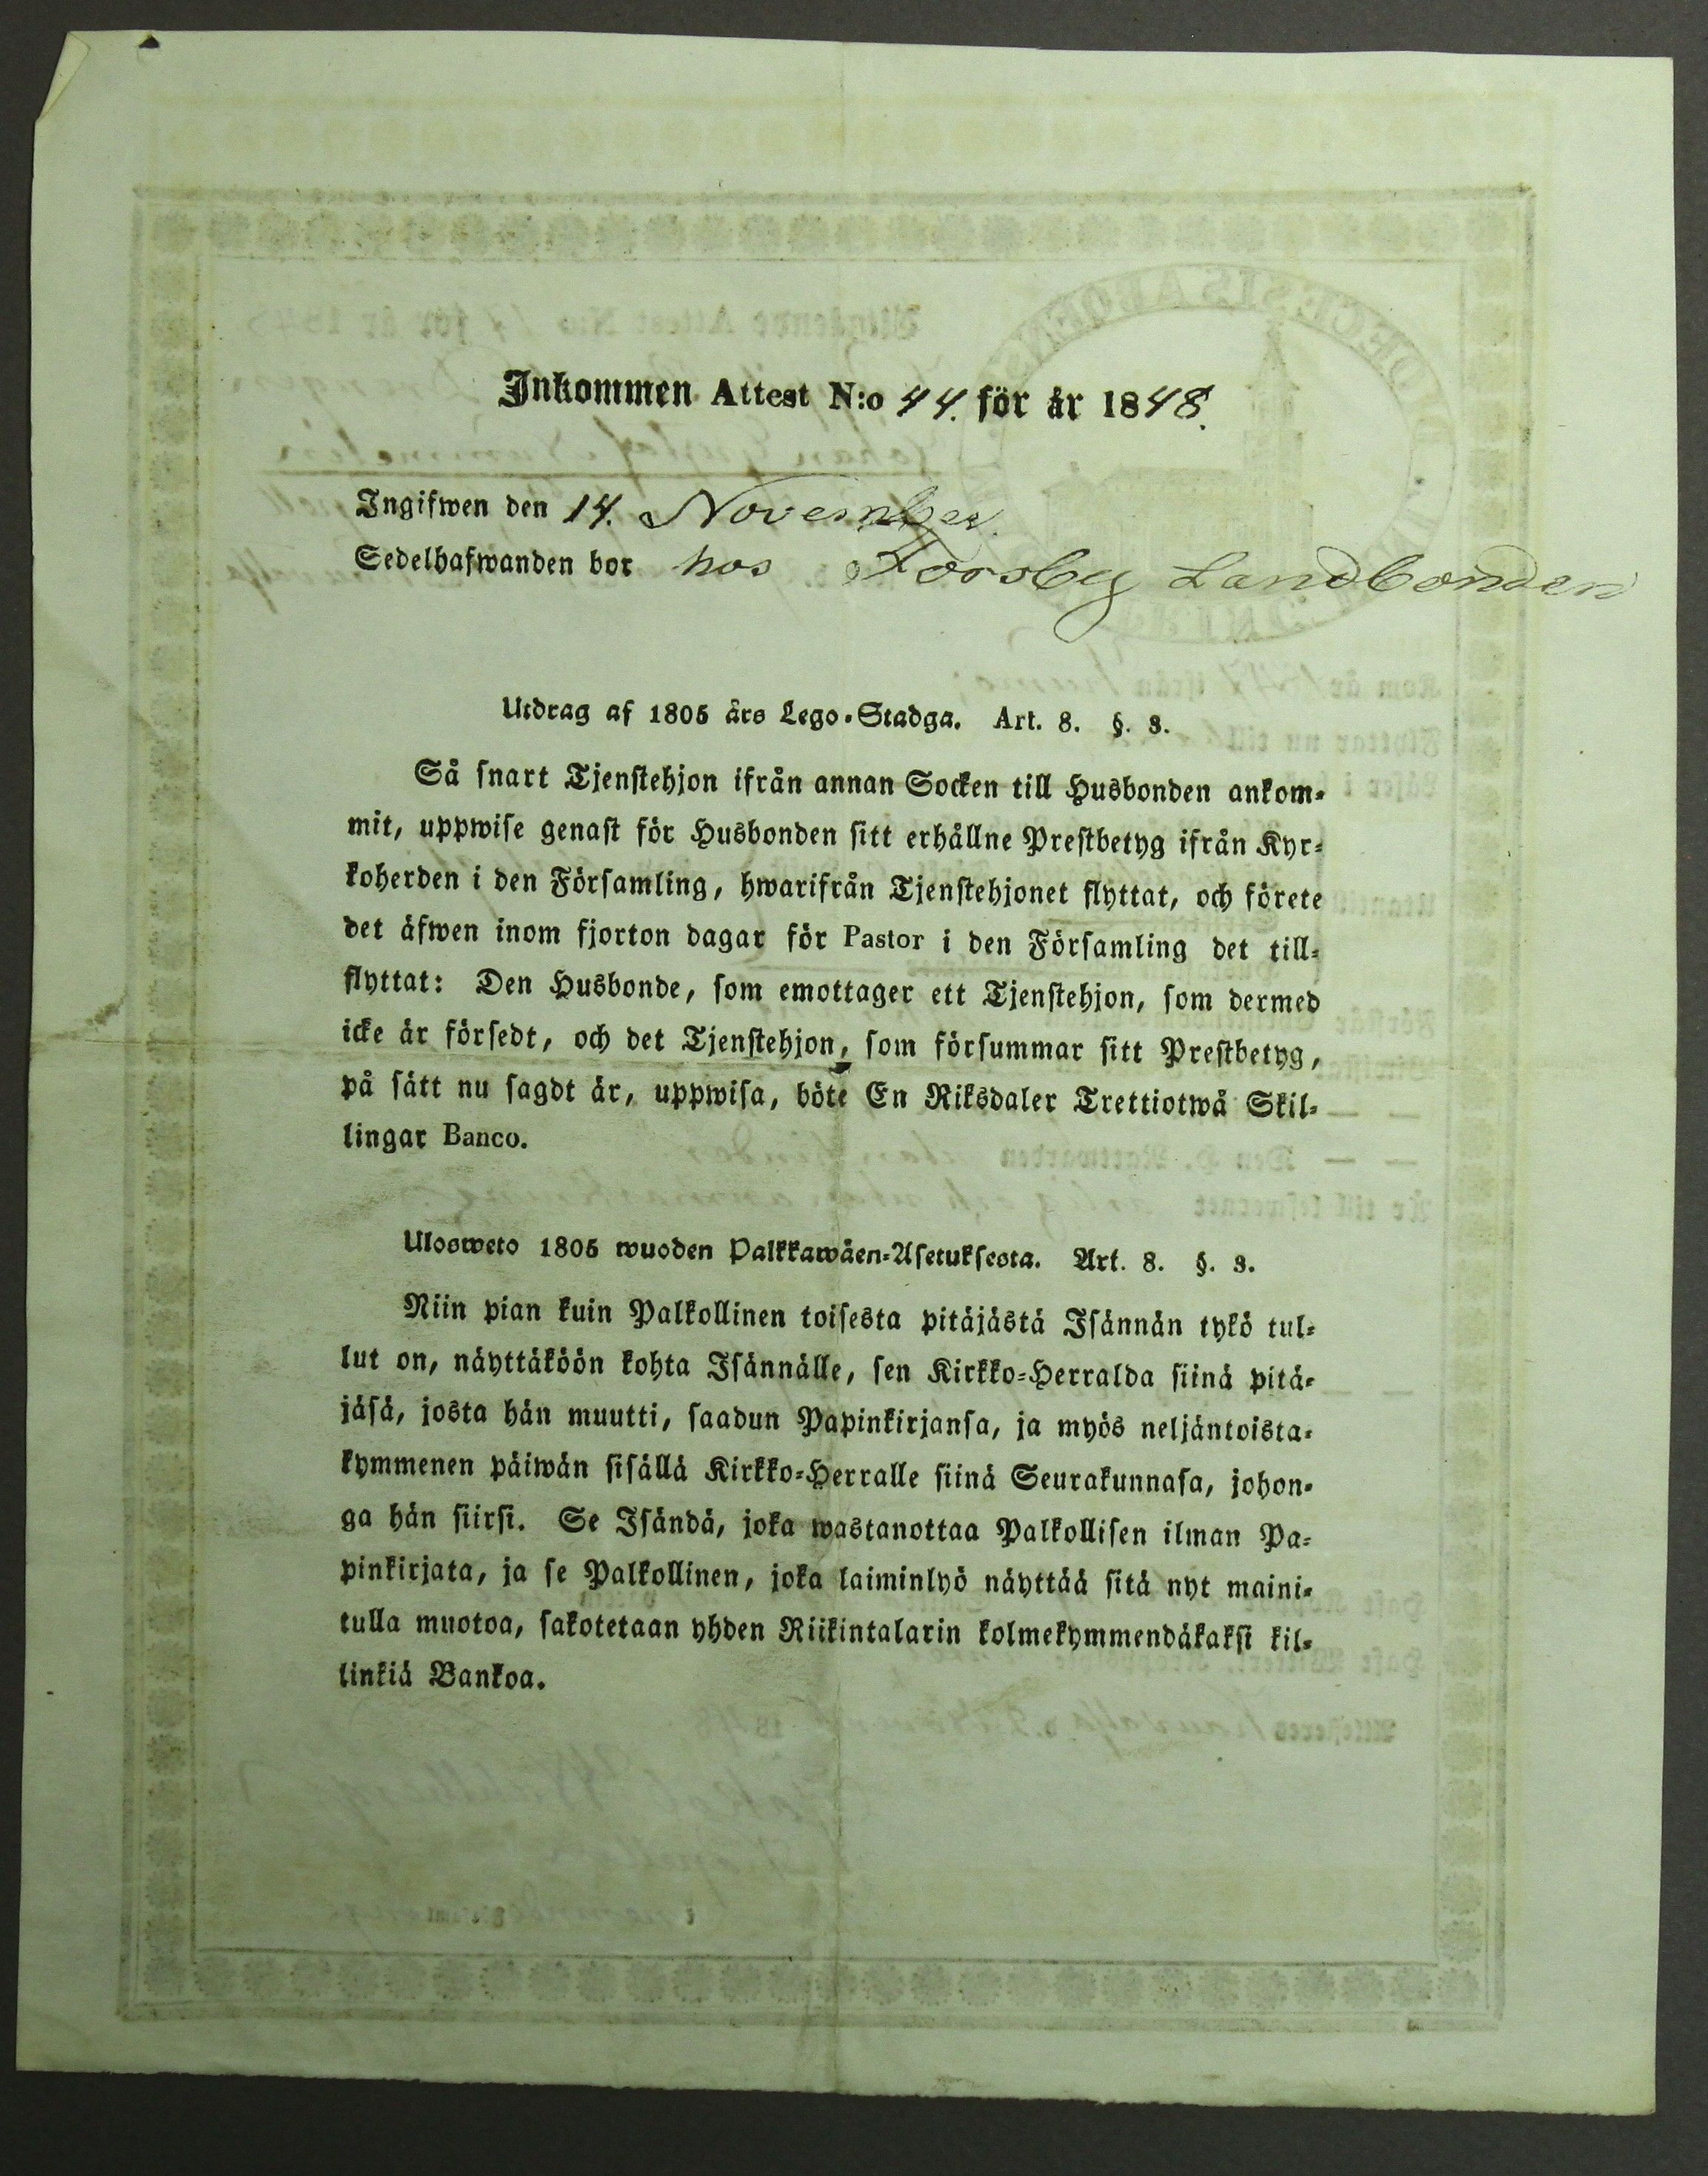 Inkommen Attest N:o 44. för år 1848.
Ingifwen den 14. November.
Sedelhafwanden bor hos Forsby Landbonden
Utdrag af 1805 års Lego-Stadga. Art. 8. §. 3.
Så snart Tjenstehjon ifrån annan Socken till Husbonden ankom-
mit, uppwise genast för Husbonden sitt erhållne Prestbetyg ifrån Kyr-
koherden i den Församling, hwarifrån Tjenstehjonet flyttat, och förete
det äfwen inom fjorton dagar för Pastor i den Församling det till-
flyttat: Den Husbonde, som emottager ett Tjenstehjon, som dermed
icke är försedt, och det Tjenstehjon, som försummar sitt Prestbetyg,
på sätt nu sagdt är, uppwisa, böte En Riksdaler Trettiotwå Skil-
lingar Banco.
Ulosweto 1805 wuoden Palkkawäen-Asetuksesta. Art. 8. §. 3.
Niin pian kuin Palkollinen toisesta pitäjästä Isännän tykö tul-
lut on, näyttäköön kohta Isännälle, sen Kirkko-Herralda siinä pitä-
jäsä, josta hän muutti, saadun Papinkirjansa, ja myös neljäntoista-
kymmenen päiwän sisällä Kirkko-Herralle siinä Seurakunnasa, johon-
ga hän siirsi. Se Isändä, joka wastanottaa Palkollisen ilman Pa-
pinkirjata, ja se Palkollinen, joka laiminlyö näyttää sitä nyt maini-
tulla muotoa, sakotetaan yhden Riikintalarin kolmekymmendäkaksi kil-
linkiä Bankoa.